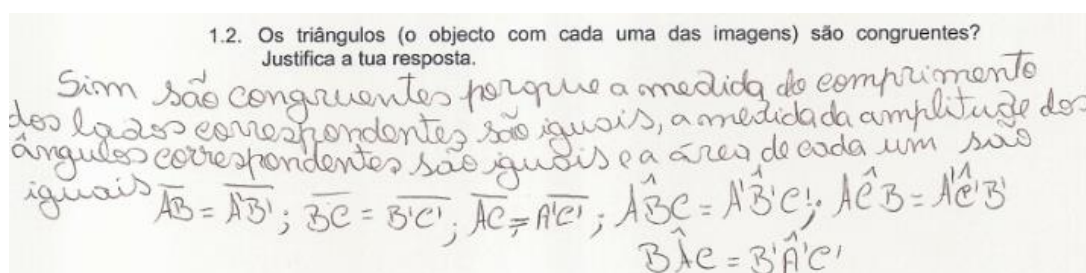 1.2. Os triângulos (o objecto com cada uma das imagens) são congruentes?
Justifica a tua resposta.
Sim são congruentes porque a medida do comprimento
dos lados correspondentes são iguais, a medida da amplitude dos
ângulos correspondentes são iguais e a área de cada um são
iguais A̅B̅ = A̅'B̅'; B̅C̅ = B̅'C̅'; A̅C̅ = A̅'C̅'; AB̂C = A'B̂'C'; AĈB = A'Ĉ'B'
BÂC = B'Â'C'